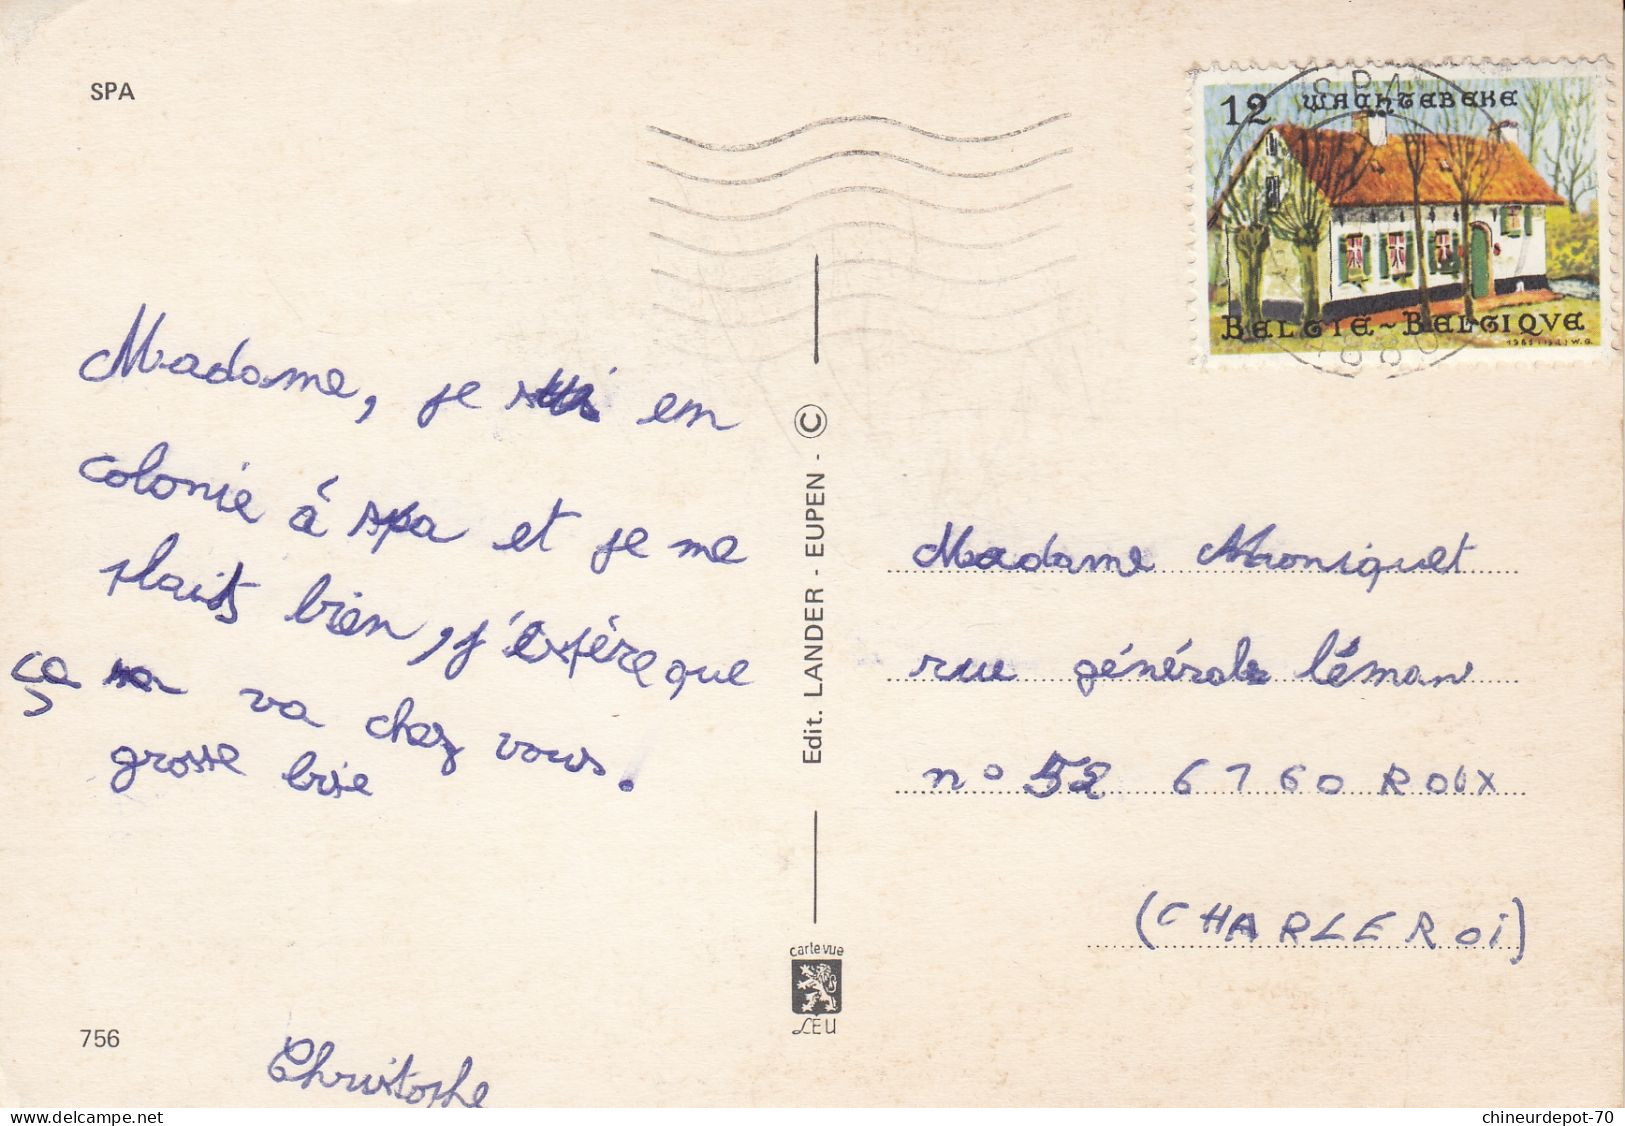 SPA
12 WACHTEBEKE
SPA
BELGIE~BELGIQVE
4880
Madame, je suis en
colonie à spa et je me
plaits bien, j'éspère que
ça va chez vous.
grosse bise
Christophe
756
Edit. LANDER - EUPEN - ©
carte-vue
LEU
Madame Moniquet
rue général léman
n° 52 6760 ROUX
(CHARLEROi)
delcampe.net
chineurdepot-70